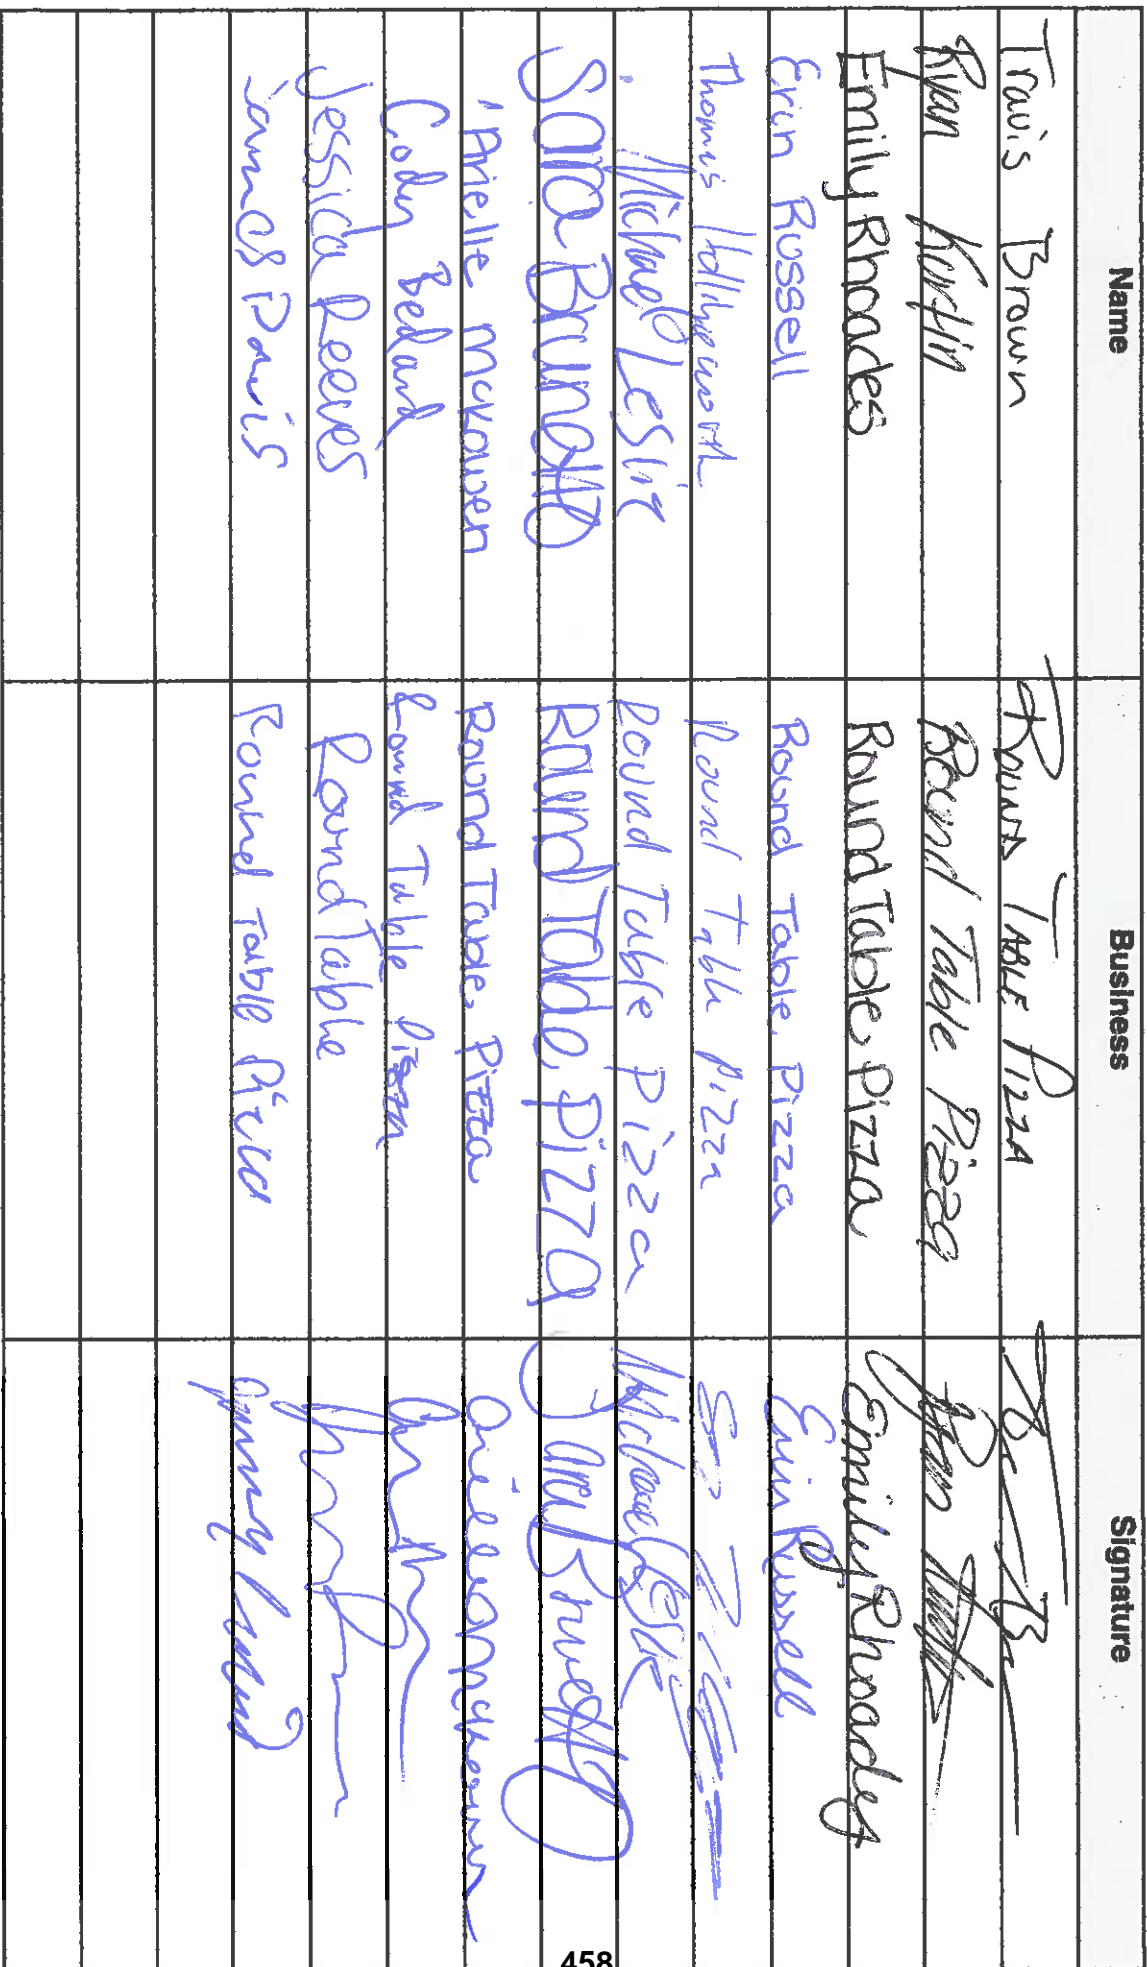 Name Business Signature
Travis Brown Round Table Pizza
Ryan Round Table Pizza Ryan
Emily Rhoades Round Table Pizza Emily Rhoades
Erin Russell Round Table Pizza Erin Russell
Thomas Round Table Pizza
Michael Leslie Round Table Pizza Michael Leslie
Sara Brunetto Round Table Pizza Sara Brunetto
Arielle McKowen Round Table Pizza Arielle McKowen
Cody Bedard Round Table Pizza
Jessica Reeves Round Table
James Davis Round Table Pizza
458